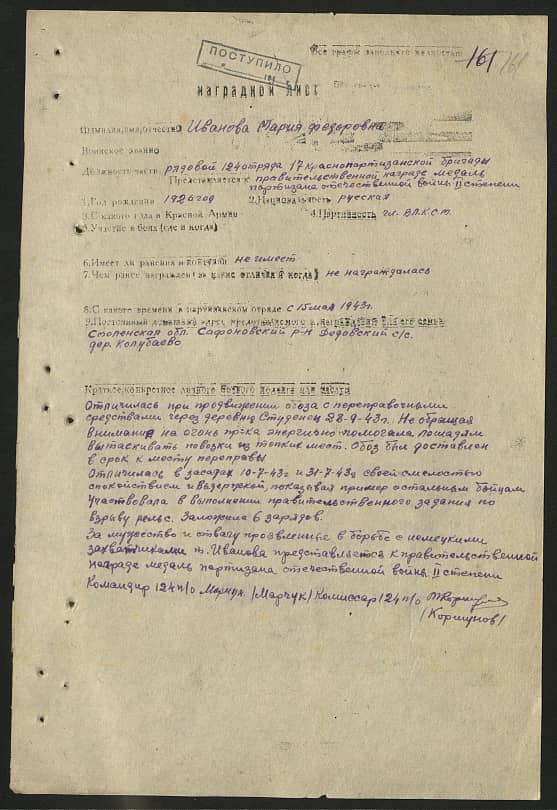 Все графы заполнять полностью
161 161
ПОСТУПИЛО
НАГРАДНОЙ ЛИСТ
Фамилия, имя, отчество Иванова Мария Федоровна
Воинское звание
Должность часть рядовой 124 отряда 17 Краснопартизанской бригады
Представляется к правительственной награде медаль
партизана отечественной войны II степени
1. Год рождения 1926 год 2. Национальность русская
3. С какого года в Красной Армии 4. Партийность чл. ВЛКСМ.
5. Участие в боях (где и когда)
6. Имеет ли ранения и контузии не имеет
7. Чем ранее награжден (за какие отличия и когда) не награждалась
8. С какого времени в партизанском отряде с 15 мая 1943 г.
9. Постоянный домашний адрес представляемого к награждению или его семьи
Смоленская обл. Сафоновский р-н Дедовский с/с.
дер. Колупаево
Краткое, конкретное личного боевого подвига или заслуг
Отличилась при продвижении обоза с переправочными
средствами через деревню Студенец 28-9-43 г. Не обращая
внимание на огонь пр-ка энергично помогала лошадям
вытаскивать повозки из топких мест. Обоз был доставлен
в срок к месту переправы
Отличилась в засадах 10-7-43 г и 31-7-43 г своей смелостью
спокойствием и выдержкой, показывая пример остальным бойцам
Участвовала в выполнении правительственного задания по
взрыву рельс. Заложила 6 зарядов.
За мужество и отвагу проявленные в борьбе с немецкими
захватчиками т. Иванова представляется к правительственной
награде медаль партизана отечественной войны II степени
Командир 124 п/о /Марчук/ Комиссар 124 п/о
/Коршунов/